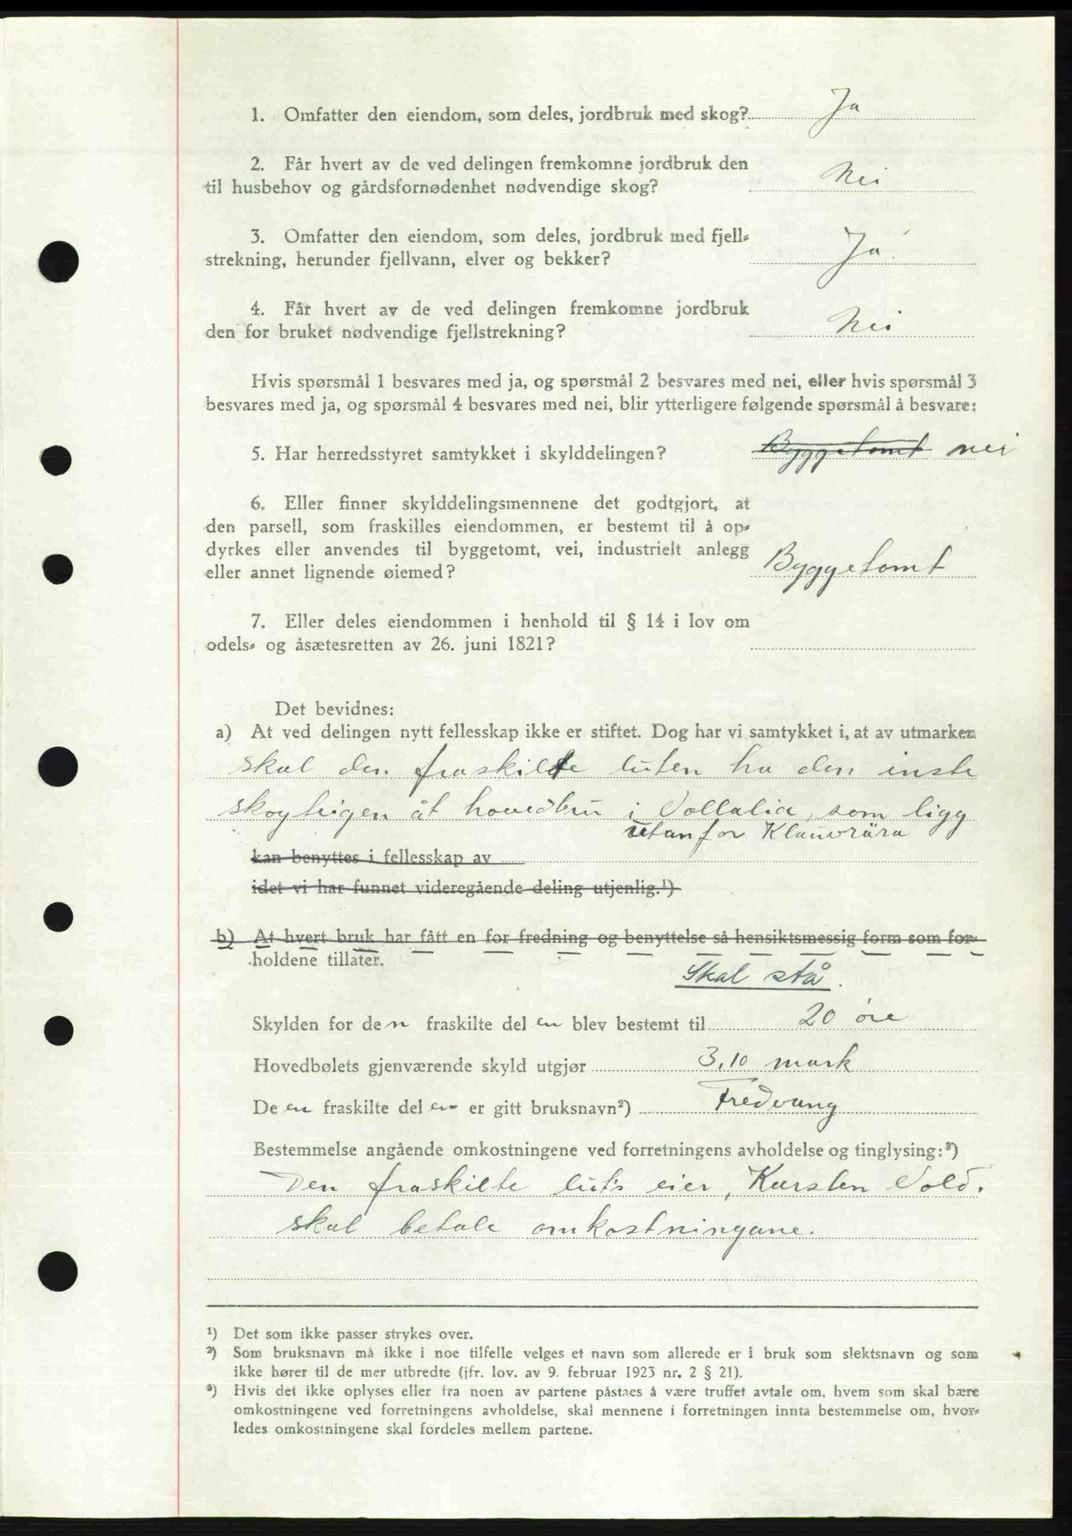 1. Omfatter den eiendom, som deles, jordbruk med skog? Ja
2. Får hvert av de ved delingen fremkomne jordbruk den
til husbehov og gårdsfornødenhet nødvendige skog? Nei
3. Omfatter den eiendom, som deles, jordbruk med fjell-
strekning, herunder fjellvann, elver og bekker? Ja
4. Får hvert av de ved delingen fremkomne jordbruk
den for bruket nødvendige fjellstrekning? Nei
Hvis spørsmål 1 besvares med ja, og spørsmål 2 besvares med nei, eller hvis spørsmål 3
besvares med ja, og spørsmål 4 besvares med nei, blir ytterligere følgende spørsmål å besvare:
5. Har herredsstyret samtykket i skylddelingen? Byggetomt nei
6. Eller finner skylddelingsmennene det godtgjort, at
den parsell, som fraskilles eiendommen, er bestemt til å op-
dyrkes eller anvendes til byggetomt, vei, industrielt anlegg
eller annet lignende øiemed? Byggetomt
7. Eller deles eiendommen i henhold til § 14 i lov om
odels- og åsætesretten av 26. juni 1821?
Det bevidnes:
a) At ved delingen nytt fellesskap ikke er stiftet. Dog har vi samtykket i, at av utmarken
skal den fraskilte luten ha den inste
skogteigen åt hovedbru i Vollalia, som ligg
utanfor Klauvråra
kan benyttes i fellesskap av
idet vi har funnet videregående deling utjenlig.¹)
b) At hvert bruk har fått en for fredning og benyttelse så hensiktsmessig form som for-
holdene tillater.
Skal stå.
Skylden for den fraskilte del en blev bestemt til 20 øre
Hovedbølets gjenværende skyld utgjør 3,10 mark
De en fraskilte del en er gitt bruksnavn²) Fredvang
Bestemmelse angående omkostningene ved forretningens avholdelse og tinglysing:³)
Den fraskilte luts eier, Karsten Vold.
skal betale omkostningane.
¹) Det som ikke passer strykes over.
²) Som bruksnavn må ikke i noe tilfelle velges et navn som allerede er i bruk som slektsnavn og som
ikke hører til de mer utbredte (jfr. lov. av 9. februar 1923 nr. 2 § 21).
³) Hvis det ikke oplyses eller fra noen av partene påstaes å være truffet avtale om, hvem som skal bære
omkostningene ved forretningens avholdelse, skal mennene i forretningen innta bestemmelse om, hvor-
ledes omkostningene skal fordeles mellem partene.